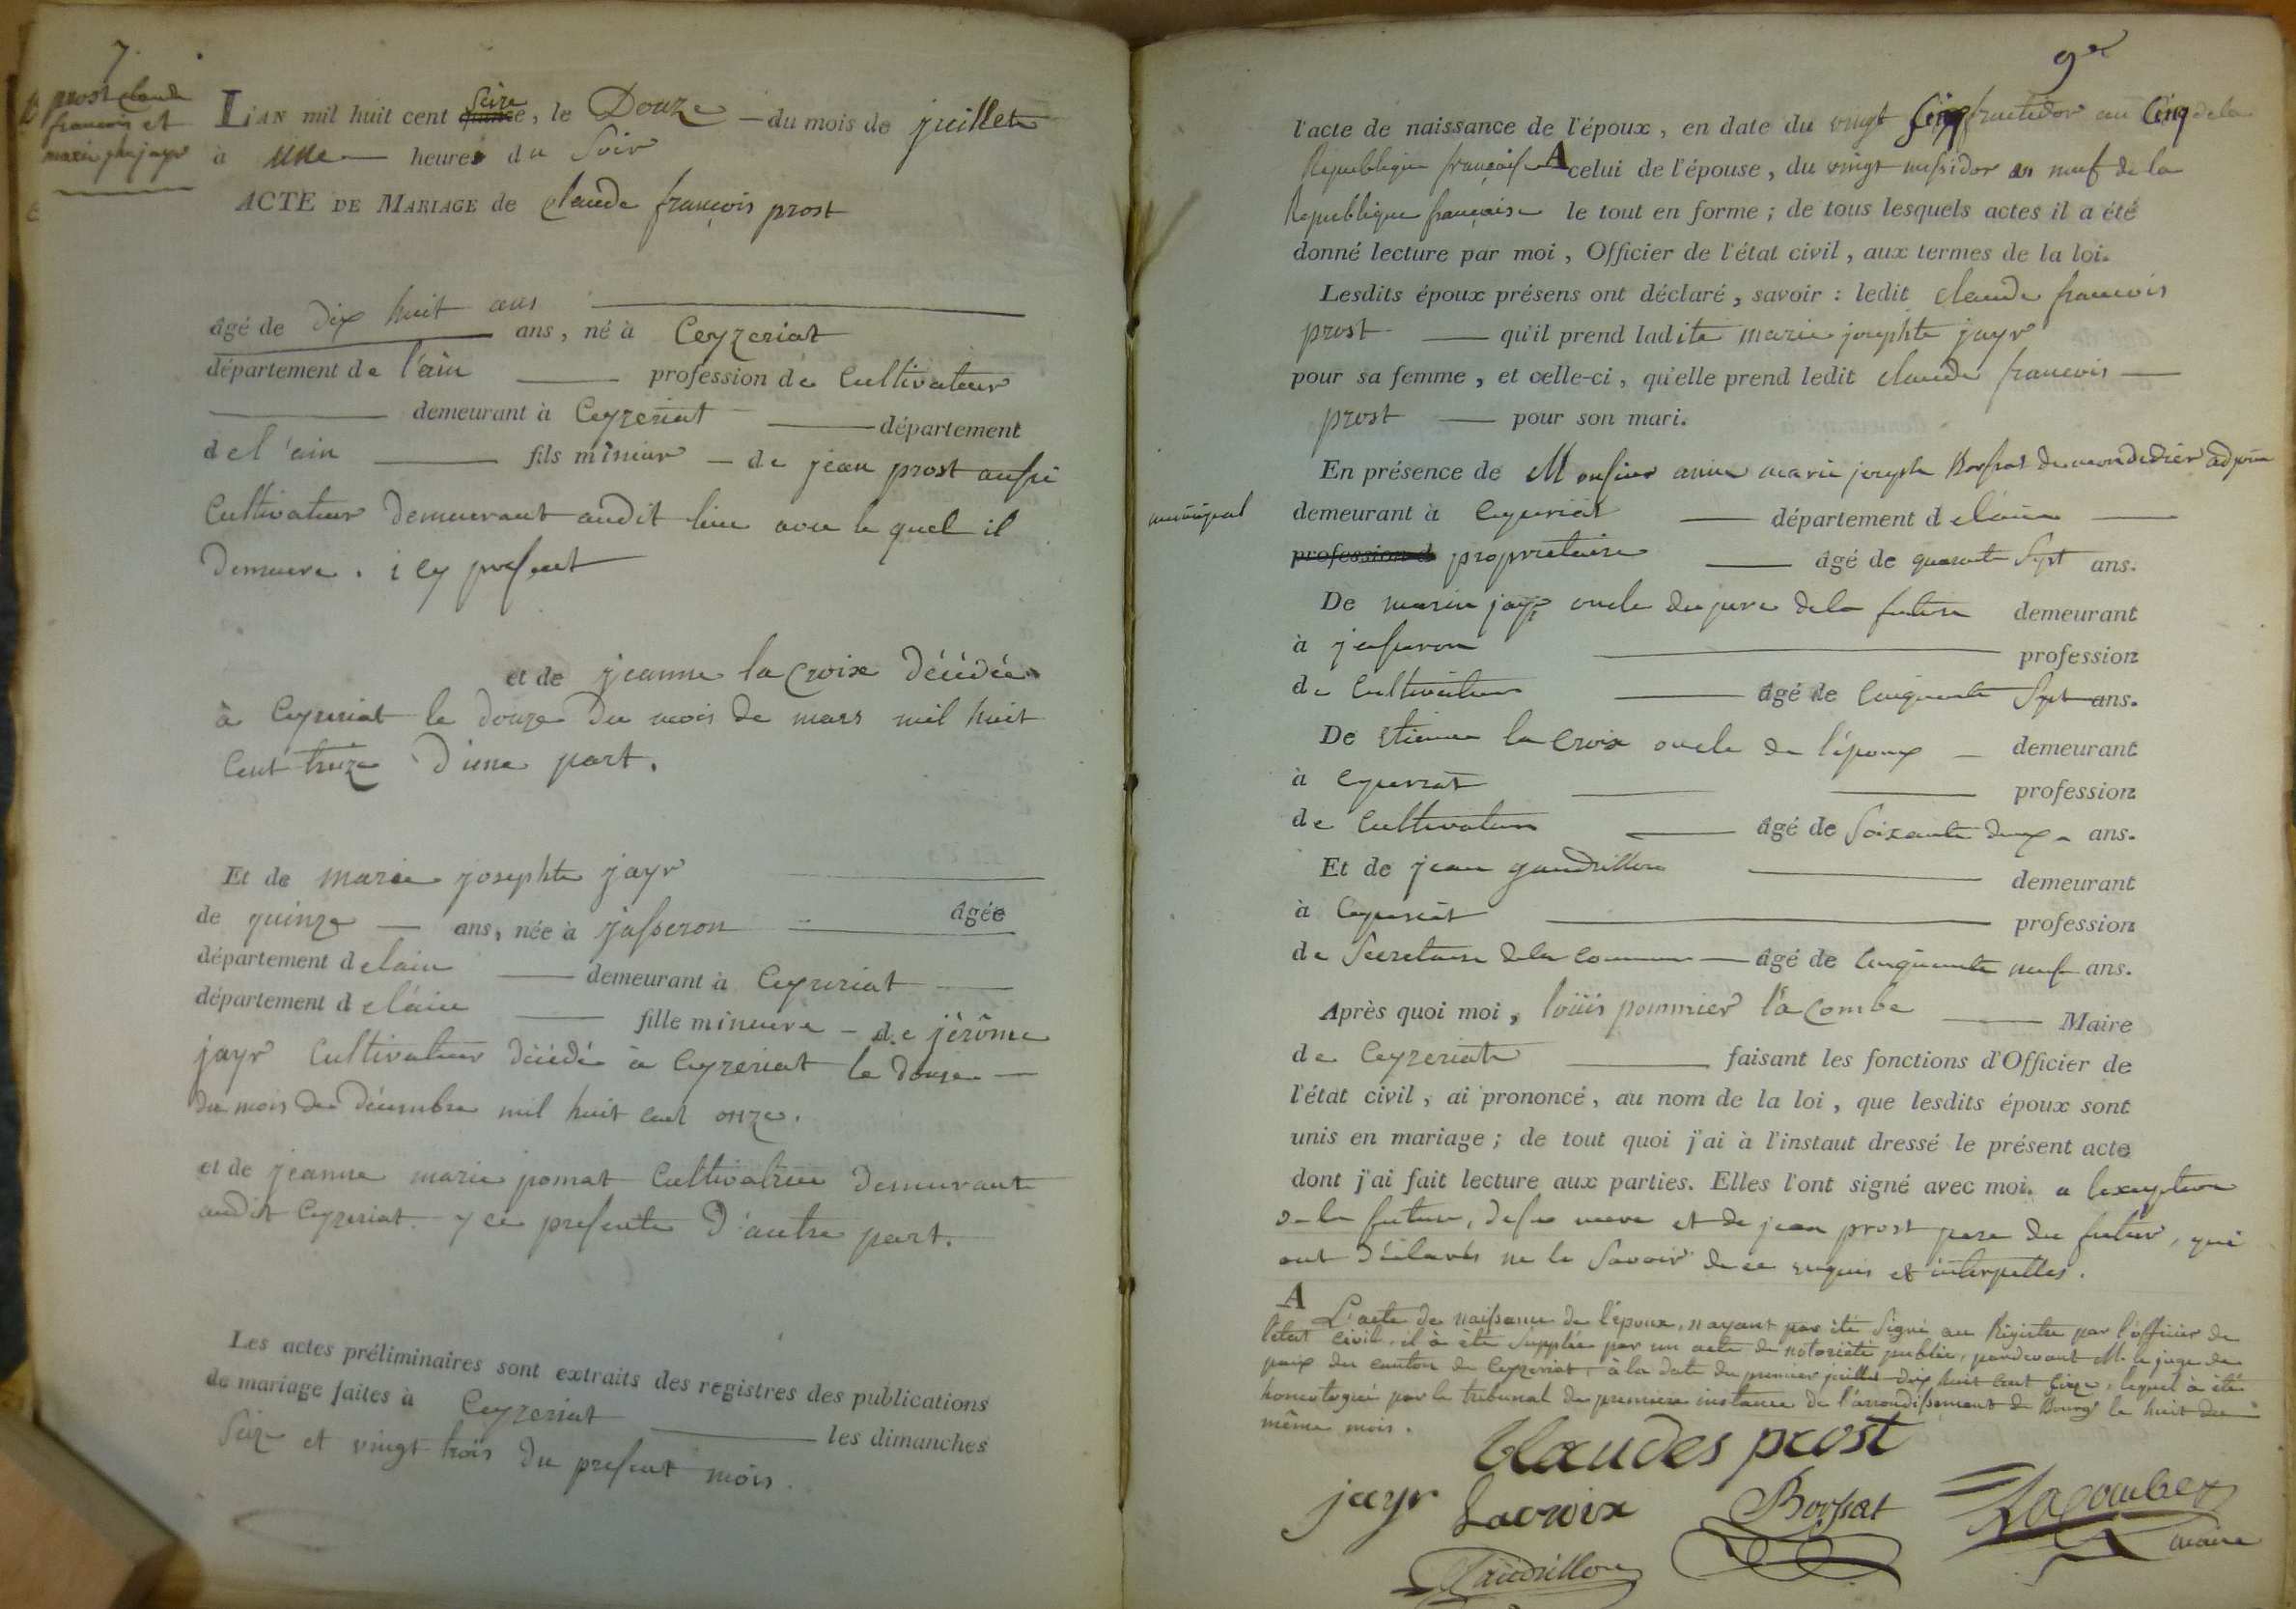 7.
prost claude
françois et
marie jphe jayr
L'AN mil huit cent quinze seize, le Douze — du mois de juillet
à une — heures du Soir
ACTE DE MARIAGE de claude françois prost
âgé de dix huit ans ans, né à Ceyzeriat
département de l'ain — profession de Cultivateur
— demeurant à Ceyzeriat — département
de l'ain — fils mineur — de jean prost aussi
Cultivateur demeurant audit lieu avec le quel il
demeure. icy present
et de jeanne la Croix décédée
à Ceyzeriat le douze du mois de mars mil huit
cent treize d'une part.
Et de marie josephte jayr
âgée
de quinze — ans, née à jasseron
département de lain — demeurant à Ceyzeriat —
département de l'ain — fille mineure — de jérôme
jayr Cultivateur décédé à Ceyzeriat le douze —
du mois de décembre mil huit cent onze.
et de jeanne marie pomat Cultivatrice demeurant
audit Ceyzeriat y ci presente d'autre part.
Les actes préliminaires sont extraits des registres des publications
de mariage faites à Ceyzeriat — les dimanches
Seize et vingt trois du present mois.
9
l'acte de naissance de l'époux, en date du vingt cinq fructidor an Cinq de la
Republique française A celui de l'épouse, du vingt messidor an neuf de la
Republique française le tout en forme ; de tous lesquels actes il a été
donné lecture par moi, Officier de l'état civil, aux termes de la loi.
Lesdits époux présens ont déclaré, savoir : ledit claude francois
prost — qu'il prend ladite marie josephte jayr
pour sa femme, et celle-ci, qu'elle prend ledit claude francois —
prost — pour son mari.
En présence de Monsieur anne marie joseph Borssat de mondidier adjoin
municipal
demeurant à Ceyzeriat — département de lain —
profession d proprietaire — âgé de quarante Sept ans.
De marin jayr oncle du pere de la future demeurant
à jasseron — profession
de Cultivateur — âgé de Cinquante Sept ans.
De Etienne la Croix oncle de l'époux — demeurant
à Ceyzeriat — profession
de Cultivateur — âgé de Soixante deux - ans.
Et de jean gaudrillon — demeurant
à Ceyzeriat — profession
de Secretaire de la Commune — âgé de Cinquante neuf ans.
Après quoi moi, loüis pommier la combe — Maire
de Ceyzeriat — faisant les fonctions d'Officier de
l'état civil, ai prononcé, au nom de la loi, que lesdits époux sont
unis en mariage ; de tout quoi j'ai à l'instant dressé le présent acte
dont j'ai fait lecture aux parties. Elles l'ont signé avec moi. a lexception
de la future, de sa mere et de jean prost pere du futur, qui
ont déclarés ne le Savoir de ce enquis et interpellés.
A
L'acte de naissance de l'époux, n'ayant pas été Signé au Régistre par l'officier de
l'état civil, il à été Supplée par un acte de notoriété public, pardevant M. le juge de
paix du canton de Ceyzeriat, à la date du premier juillet dix huit cent Seize, lequel à été
homologué par le tribunal de premiere instance de l'arrondissement de Bourg le huit du
même mois.
Claudes prost
jayr Lacroix Borssat Lacombe
maire
Gaudrillon